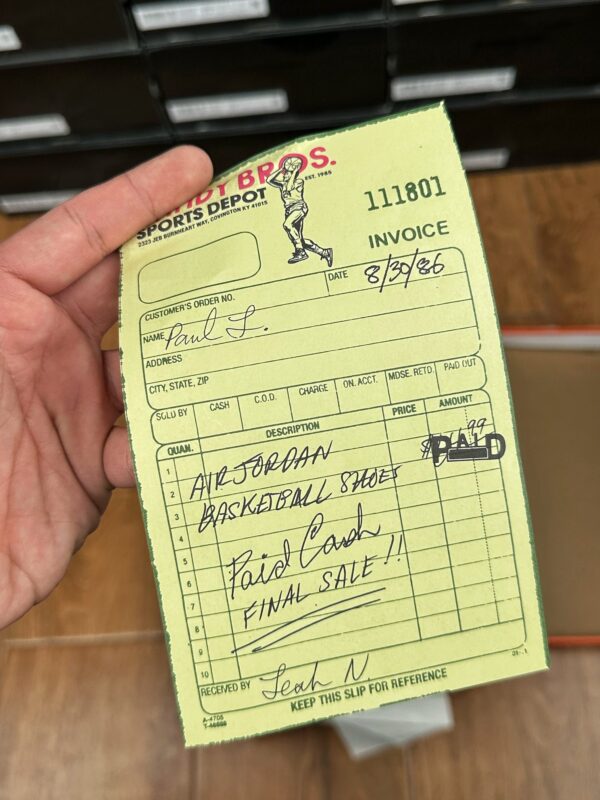 DY BROS.
SPORTS DEPOT
EST. 1985
2323 JEB BURNHEART WAY, COVINGTON KY 41015
111801
INVOICE
CUSTOMER'S ORDER NO.
DATE 8/30/86
NAME Paul L.
ADDRESS
CITY, STATE, ZIP
SOLD BY CASH C.O.D. CHARGE ON. ACCT. MDSE. RETD. PAID OUT
QUAN. DESCRIPTION PRICE AMOUNT
1 AIR JORDAN PAID
2 BASKETBALL SHOES
3
4
5 Paid Cash
6 FINAL SALE!!
7
8
9
10
RECEIVED BY Leah N.
KEEP THIS SLIP FOR REFERENCE
A-4705